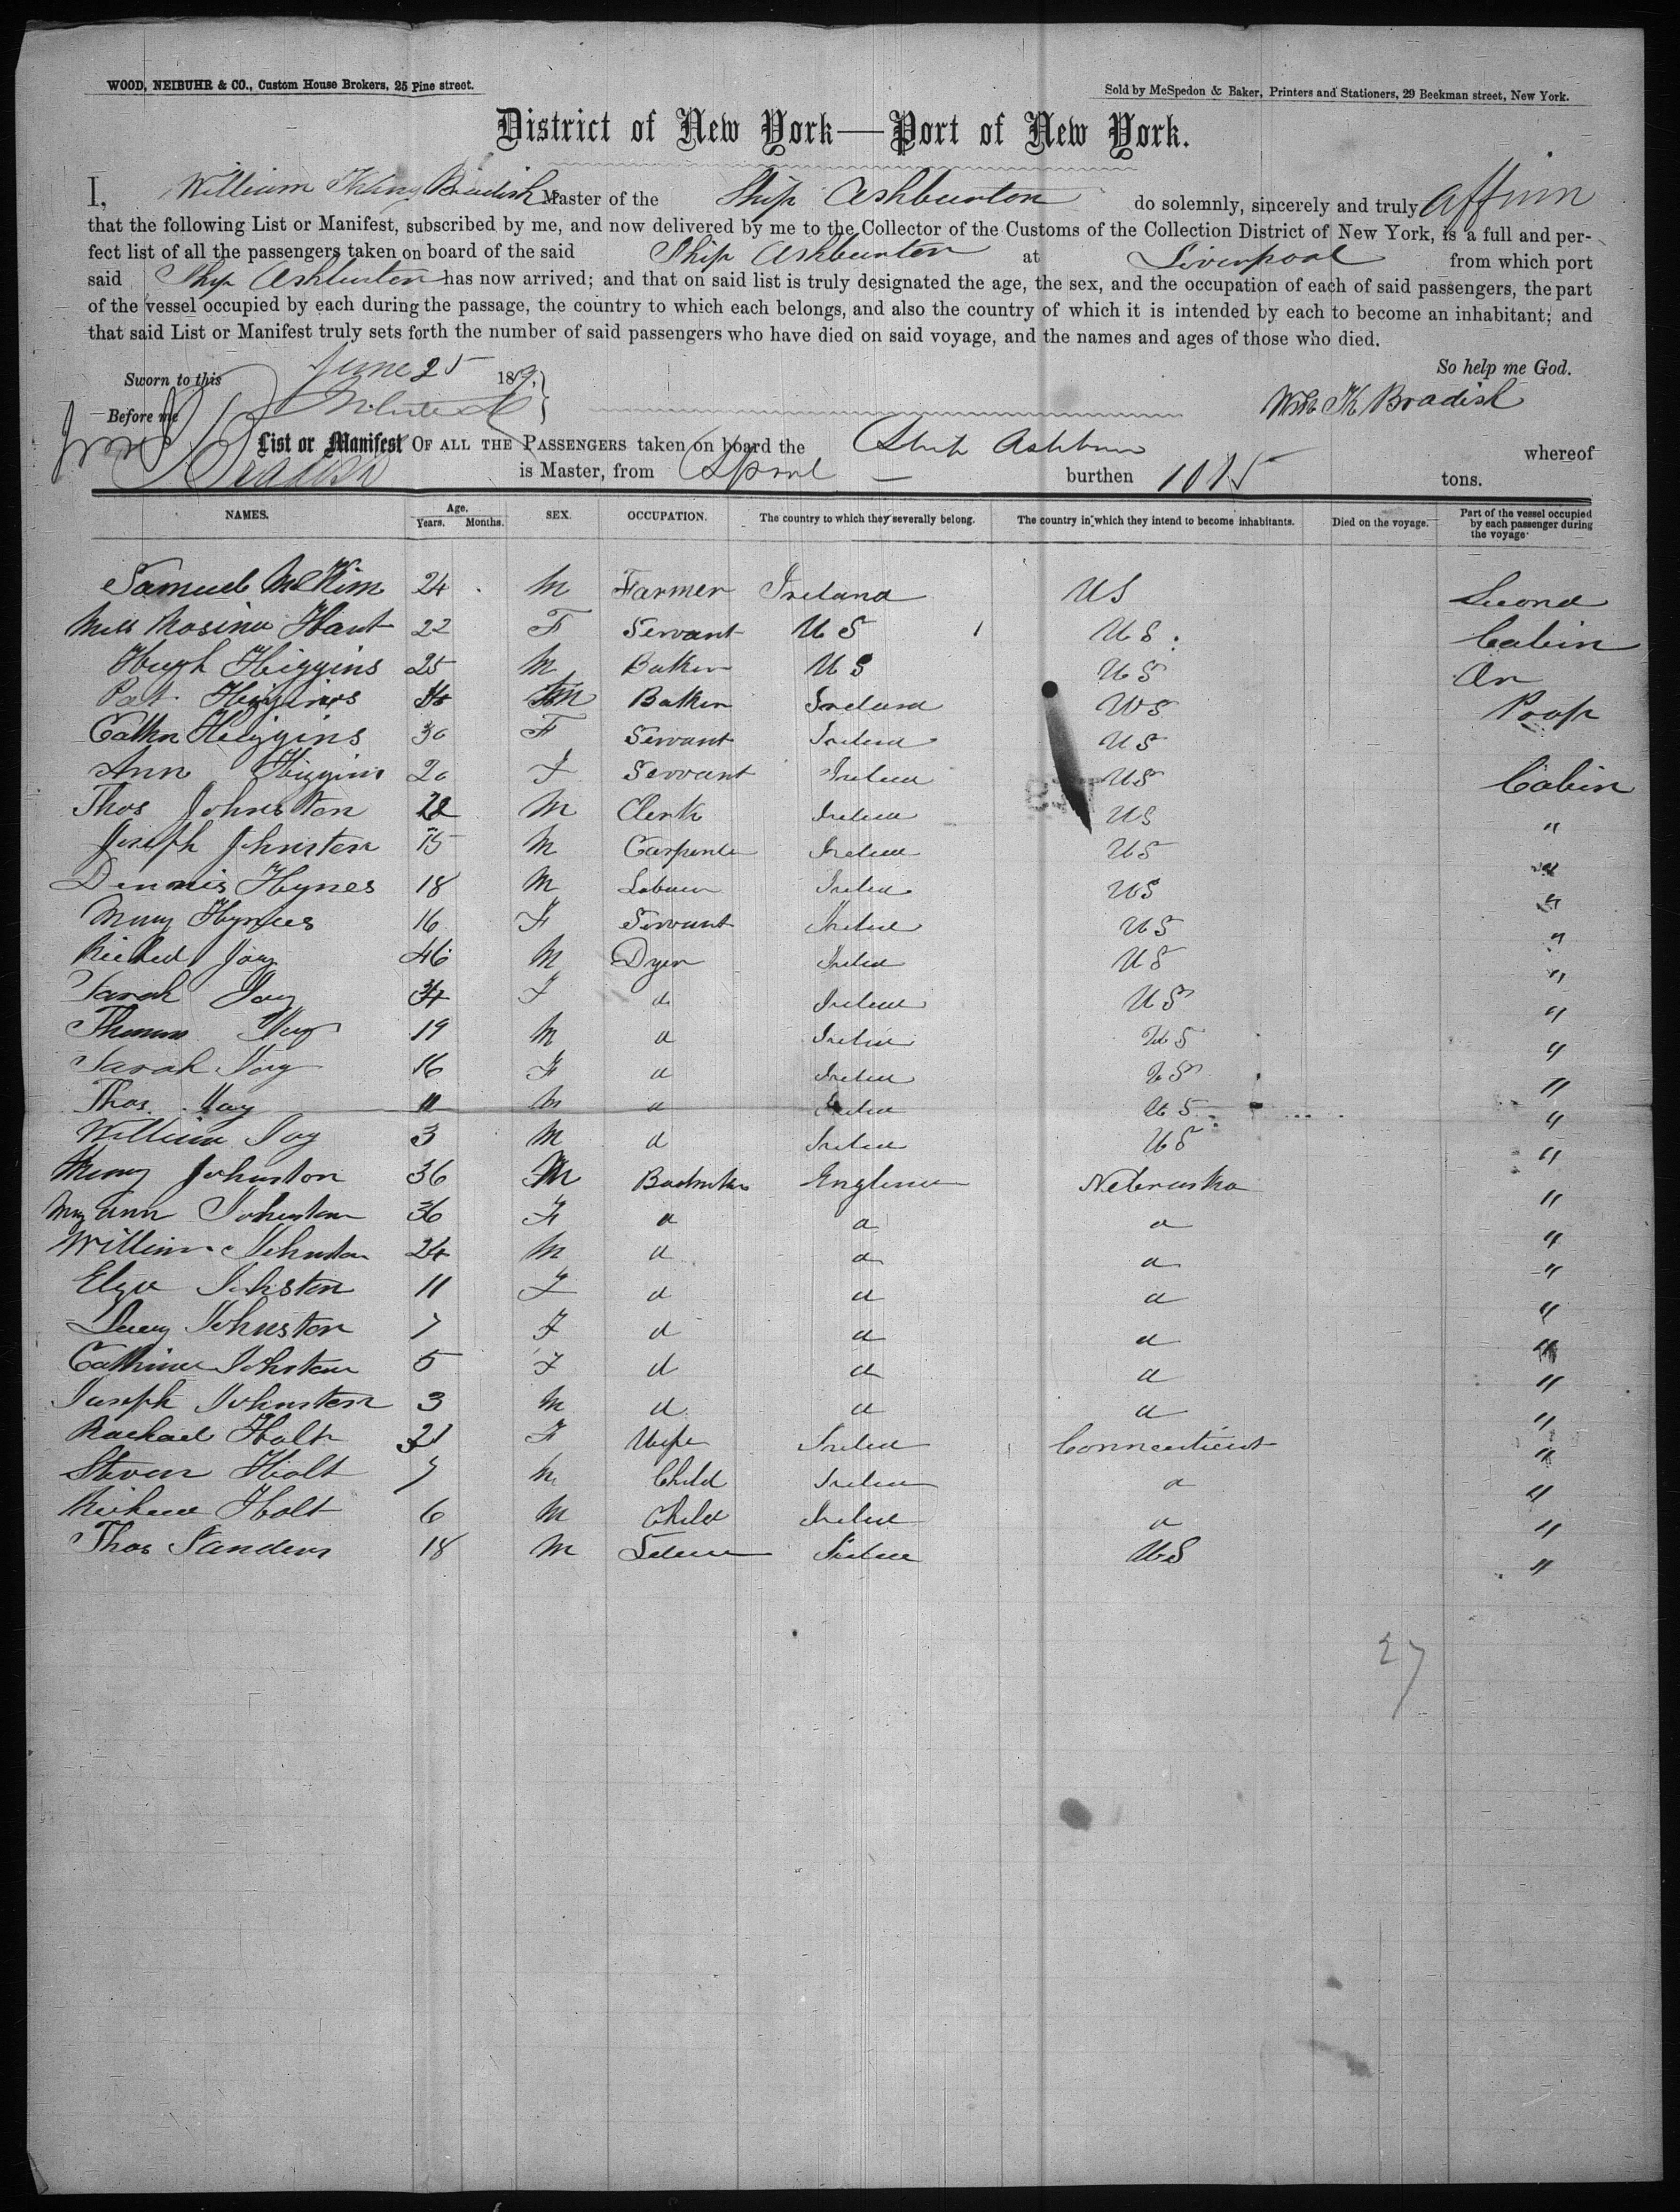 WOOD, NEIBUHR & CO., Custom House Brokers, 25 Pine street.
Sold by McSpedon & Baker, Printers and Stationers, 29 Beekman street, New York.
District of New York—Port of New York.
I, William Bradish Master of the Ship Ashburton do solemnly, sincerely and truly affirm
that the following List or Manifest, subscribed by me, and now delivered by me to the Collector of the Customs of the Collection District of New York, is a full and per-
fect list of all the passengers taken on board of the said Ship Ashburton at Liverpool from which port
said Ship Ashburton has now arrived; and that on said list is truly designated the age, the sex, and the occupation of each of said passengers, the part
of the vessel occupied by each during the passage, the country to which each belongs, and also the country of which it is intended by each to become an inhabitant; and
that said List or Manifest truly sets forth the number of said passengers who have died on said voyage, and the names and ages of those who died.
So help me God.
Sworn to this June 25 185
Before me
Wm K Bradish
List or Manifest OF ALL THE PASSENGERS taken on board the Ship Ashburn whereof
Bradish is Master, from Lpool burthen 1015 tons.
NAMES. Age. Years. Months. SEX. OCCUPATION. The country to which they severally belong. The country in which they intend to become inhabitants. Died on the voyage. Part of the vessel occupied by each passenger during the voyage.
Samuel McKim 24 M Farmer Ireland US Second
Miss Rosina Hant 22 F Servant US US Cabin
Hugh Higgins 25 M Baker US US On
Pat Higgins M Baker Ireland US Poop
Cathn Higgins 30 F Servant Ireland US
Ann Higgins 20 F Servant Ireland US Cabin
Thos Johnston M Clerk Ireland US "
Joseph Johnston 15 M Carpenter Ireland US "
Dennis Hynes 18 M Labourer Ireland US "
Mary Hynes 16 F Servant Ireland US "
Joy 46 M Dyer Ireland US "
Sarah Joy F d Ireland US "
Thomas Joy 19 M d Ireland US "
Sarah Joy 16 F d Ireland US "
Thos Joy 11 M d Ireland US "
William Joy 3 M d Ireland US "
Henry Johnston 36 M England Nebraska "
Mary Ann Johnston 36 F d d d "
William Johnston 24 M d d d "
Eliza Johnston 11 F d d d "
Lucy Johnston 7 F d d d "
Catherine Johnston 5 F d d d "
Joseph Johnston 3 M d d d "
Rachael Holt F Wife Ireland Connecticut "
Steven Holt 7 M Child Ireland d "
Holt 6 M Child Ireland d "
Thos Sanders 18 M Ireland US "
27